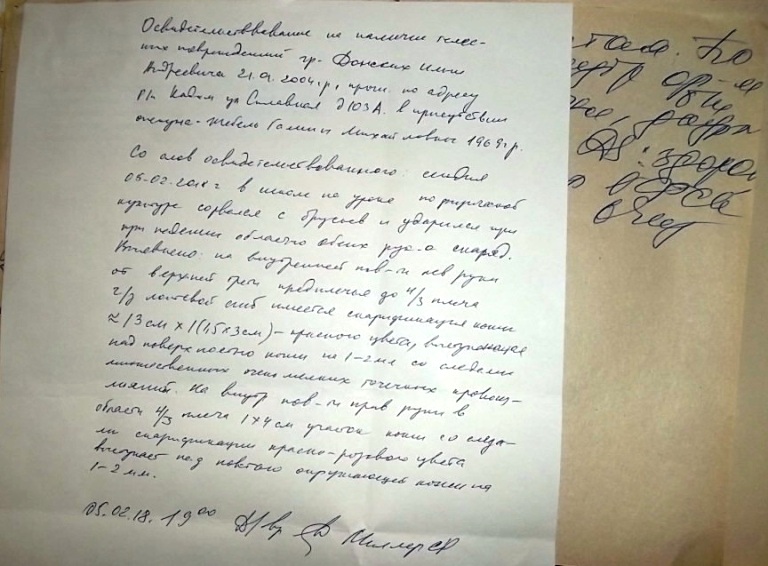 Освидетельствование на наличие телес-
ных повреждений гр. Донских Ильи
Андреевича 21.09.2004г.р, прож. по адресу
ул д103А. в присутствии
опекуна- Галины Михайловны 1969г.р.
Со слов освидетельствованного: сегодня
05-02-2018г в школе на уроке по физической
культуре сорвался с брусьев и ударился при
при падении областью обеих рук о снаряд.
Выявлено: на внутренней пов-ти лев руки
от верхней трети предплечья до н/3 плеча
ч/з локтевой сгиб имеется скарификация кожи
≈13см х 1(1,5х3см)- красного цвета, выступающая
над поверхностью кожи на 1-2мм со следами
множественных очень мелких точечных кровоиз-
лияний. На внутр пов-ти прав руки в
области н/3 плеча 1х4см участок кожи со следа-
ми скарификации красно-розового цвета
выступает над окружающей кожи на
1-2мм.
05.02.18. 19⁰⁰ Д/вр Миллер
здоров